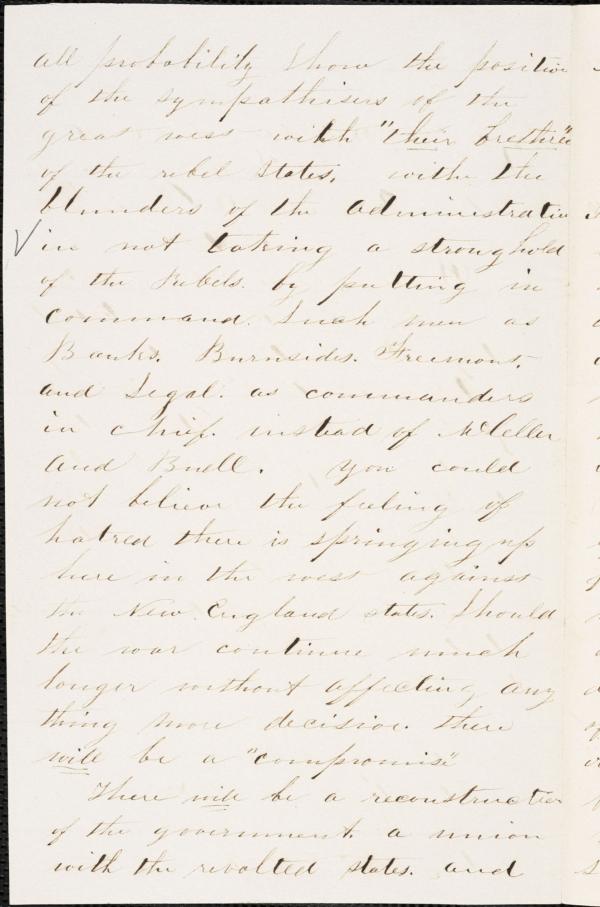 all probability Show the position
of the sympathisers of the
great west with "their brethren"
of the rebel States, withe the
blunders of the administration
in not taking a strong hold
of the Rebels. by putting in
command. Such men as
Banks. Burnsides. Freemont.
and Segal. as commanders
in chief. instead of McCellen
and Buell. you could
not believe the feeling of
hatred there is springing up
here in the west against
the New England states. Should
the war continue much
longer without affecting any
thing more decisive. there
will be a "compromise"
There will be a reconstruction
of the government. a union
with the revolted states. and